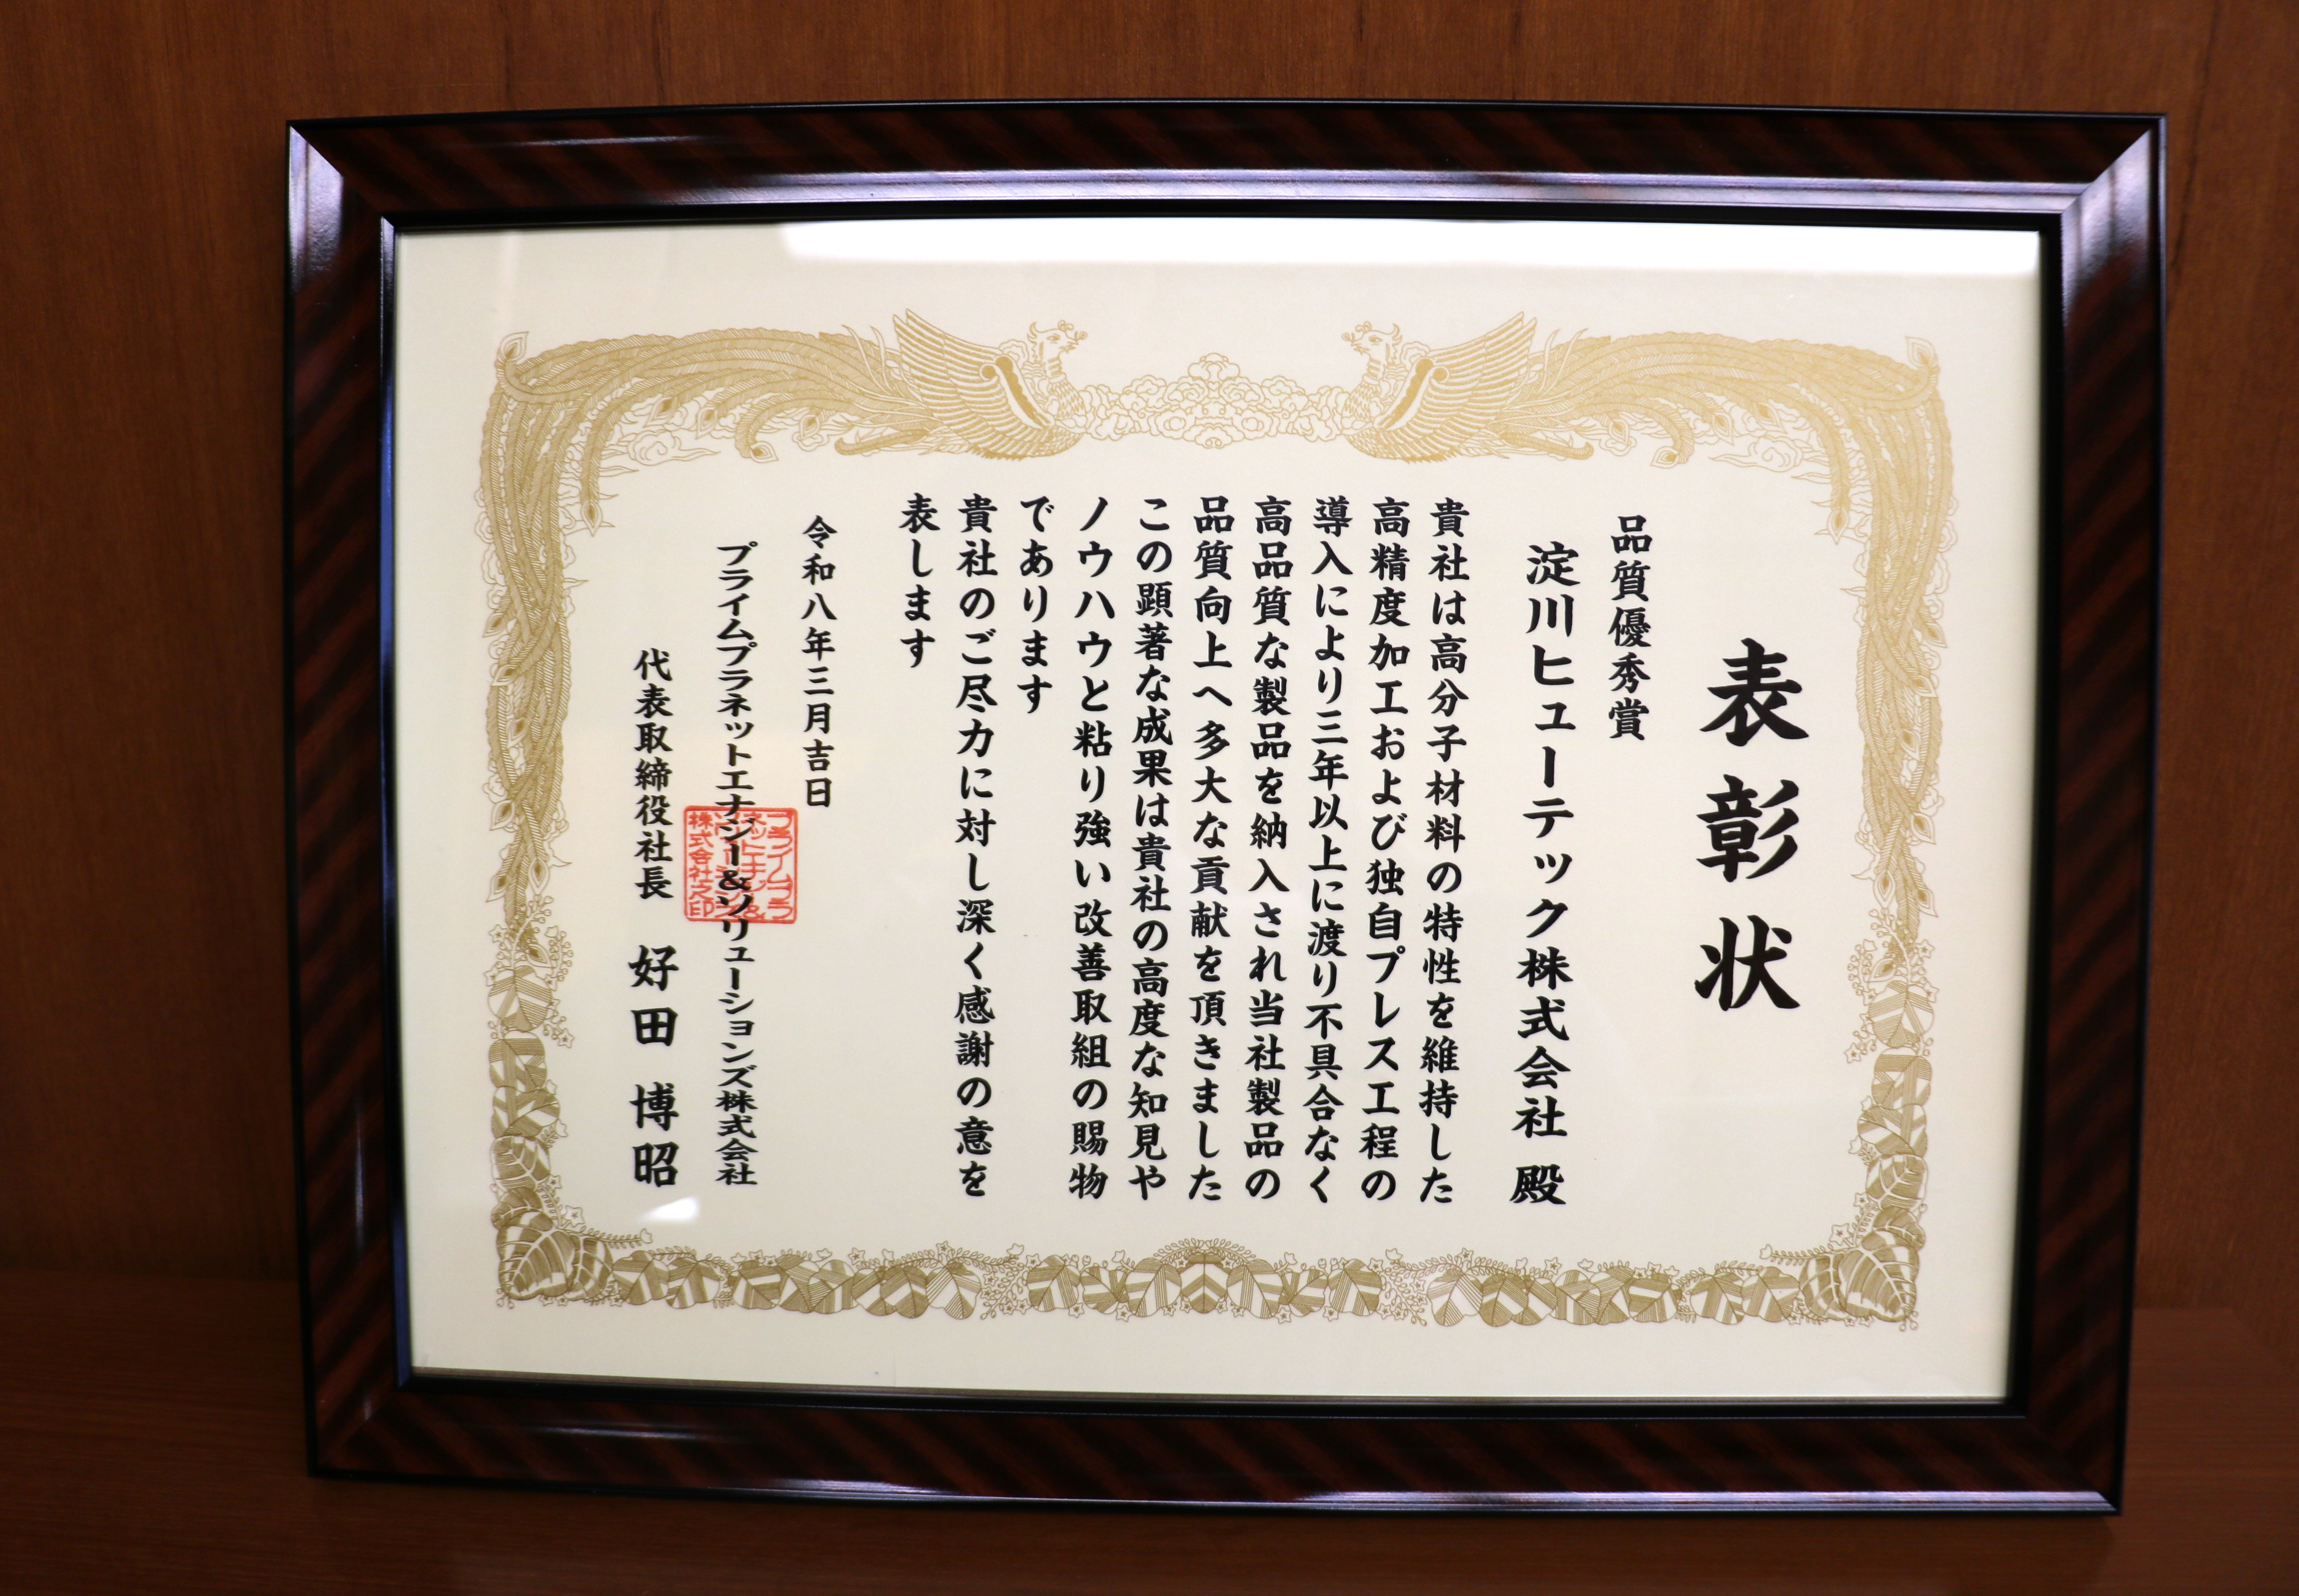 表彰状
品質優秀賞
淀川ヒューテック株式会社 殿
貴社は高分子材料の特性を維持した
高精度加工および独自プレス工程の
導入により三年以上に渡り不具合なく
高品質な製品を納入され当社製品の
品質向上へ多大な貢献を頂きました
この顕著な成果は貴社の高度な知見や
ノウハウと粘り強い改善取組の賜物
であります
貴社のご尽力に対し深く感謝の意を
表します
令和八年三月吉日
プライムプラネットエナジー&ソリューションズ株式会社
代表取締役社長 好田 博昭
プライムプラ
ネットエナジー&
ソリューションズ
株式会社之印